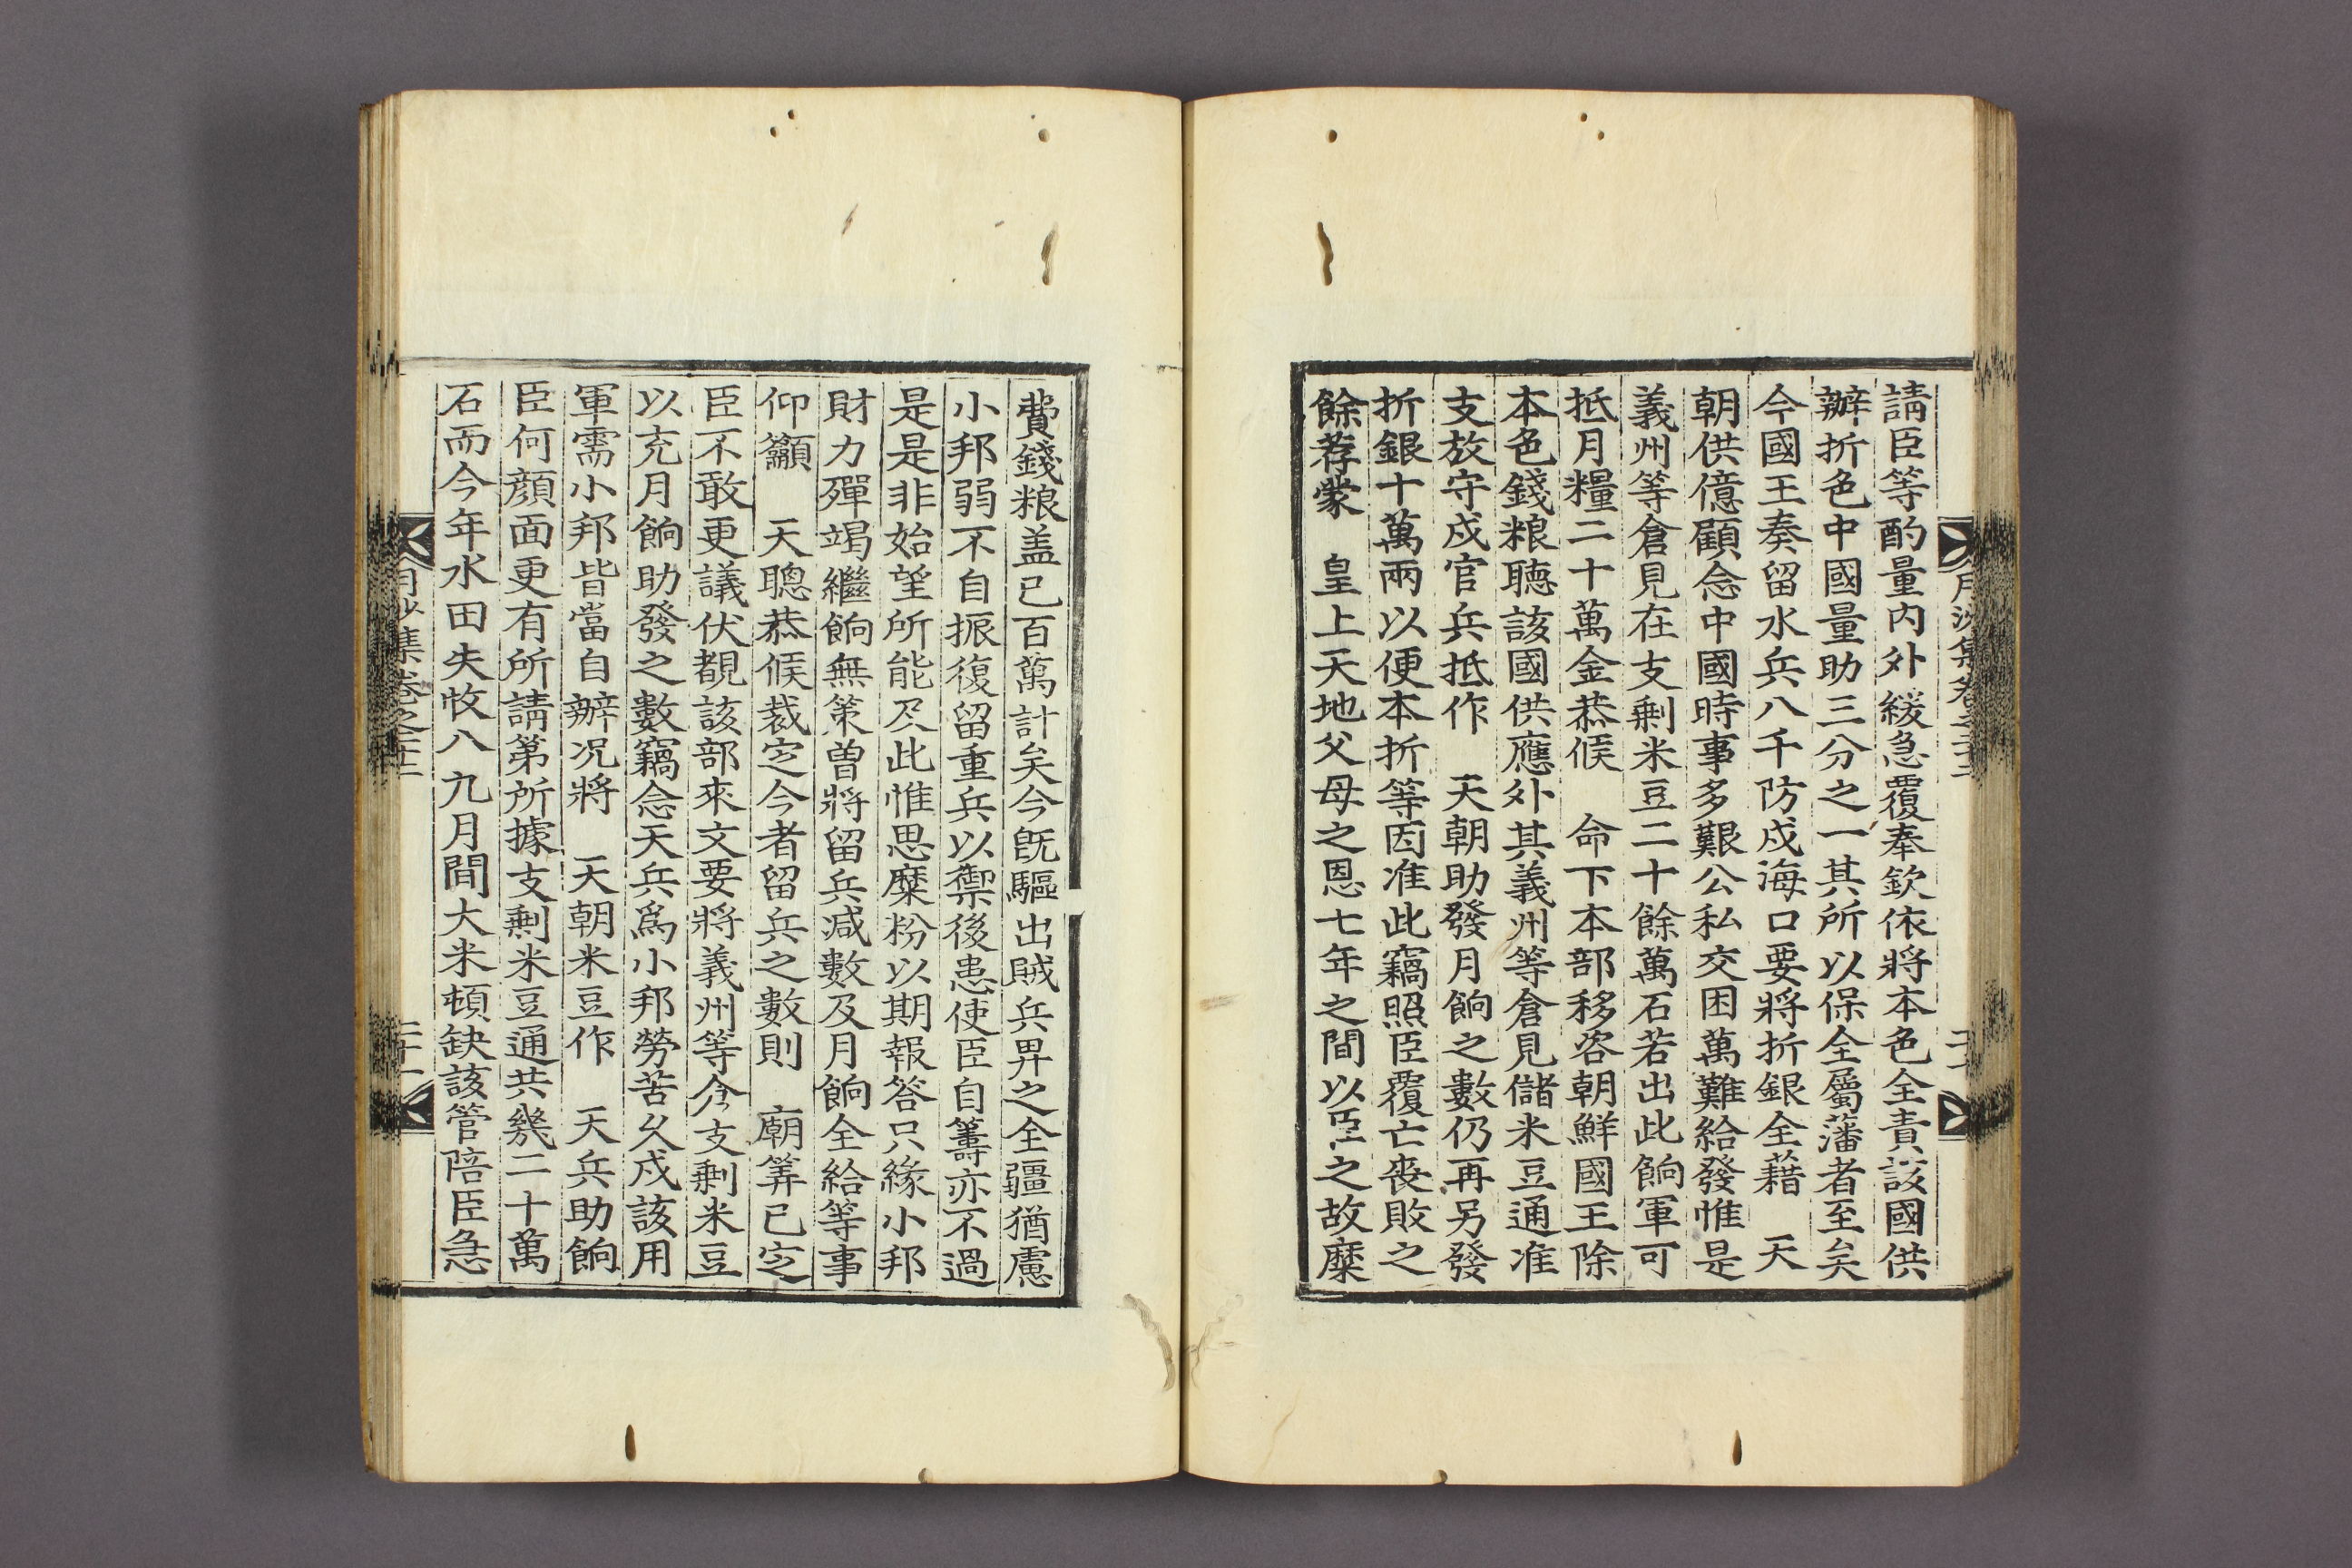 請臣等酌量内外緩急覆奉欽依將本色全責該國供
辦折色中國量助三分之一其所以保全屬藩者至矣
今國王奏留水兵八千防戍海口要將折銀全藉　天
朝供億顧念中國時事多艱公私交困萬難給發惟是
義州等倉見在支剩米豆二十餘萬石若出此餉軍可
抵月糧二十萬金恭候　命下本部移咨朝鮮國王除
本色錢粮聽該國供應外其義州等倉見儲米豆通准
支放守戍官兵抵作　天朝助發月餉之數仍再另發
折銀十萬兩以便本折等因准此竊照臣覆亡喪敗之
餘荐蒙　皇上天地父母之恩七年之間以臣之故糜
費錢粮盖已百萬計矣今旣驅出賊兵畀之全疆猶慮
小邦弱不自振復留重兵以禦後患使臣自籌亦不過
是是非始望所能及此惟思糜粉以期報答只緣小邦
財力殫竭繼餉無策曾將留兵减數及月餉全給等事
仰籲　天聰恭候裁定今者留兵之數則　廟筭已定
臣不敢更議伏覩該部來文要將義州等仓支剩米豆
以充月餉助發之數竊念天兵爲小邦勞苦久戍該用
軍需小邦皆當自辦况將　天朝米豆作　天兵助餉
臣何顔面更有所請第所據支剩米豆通共幾二十萬
石而今年水田失收八九月間大米頓缺該管陪臣急
月沙集卷之二十二
二十一